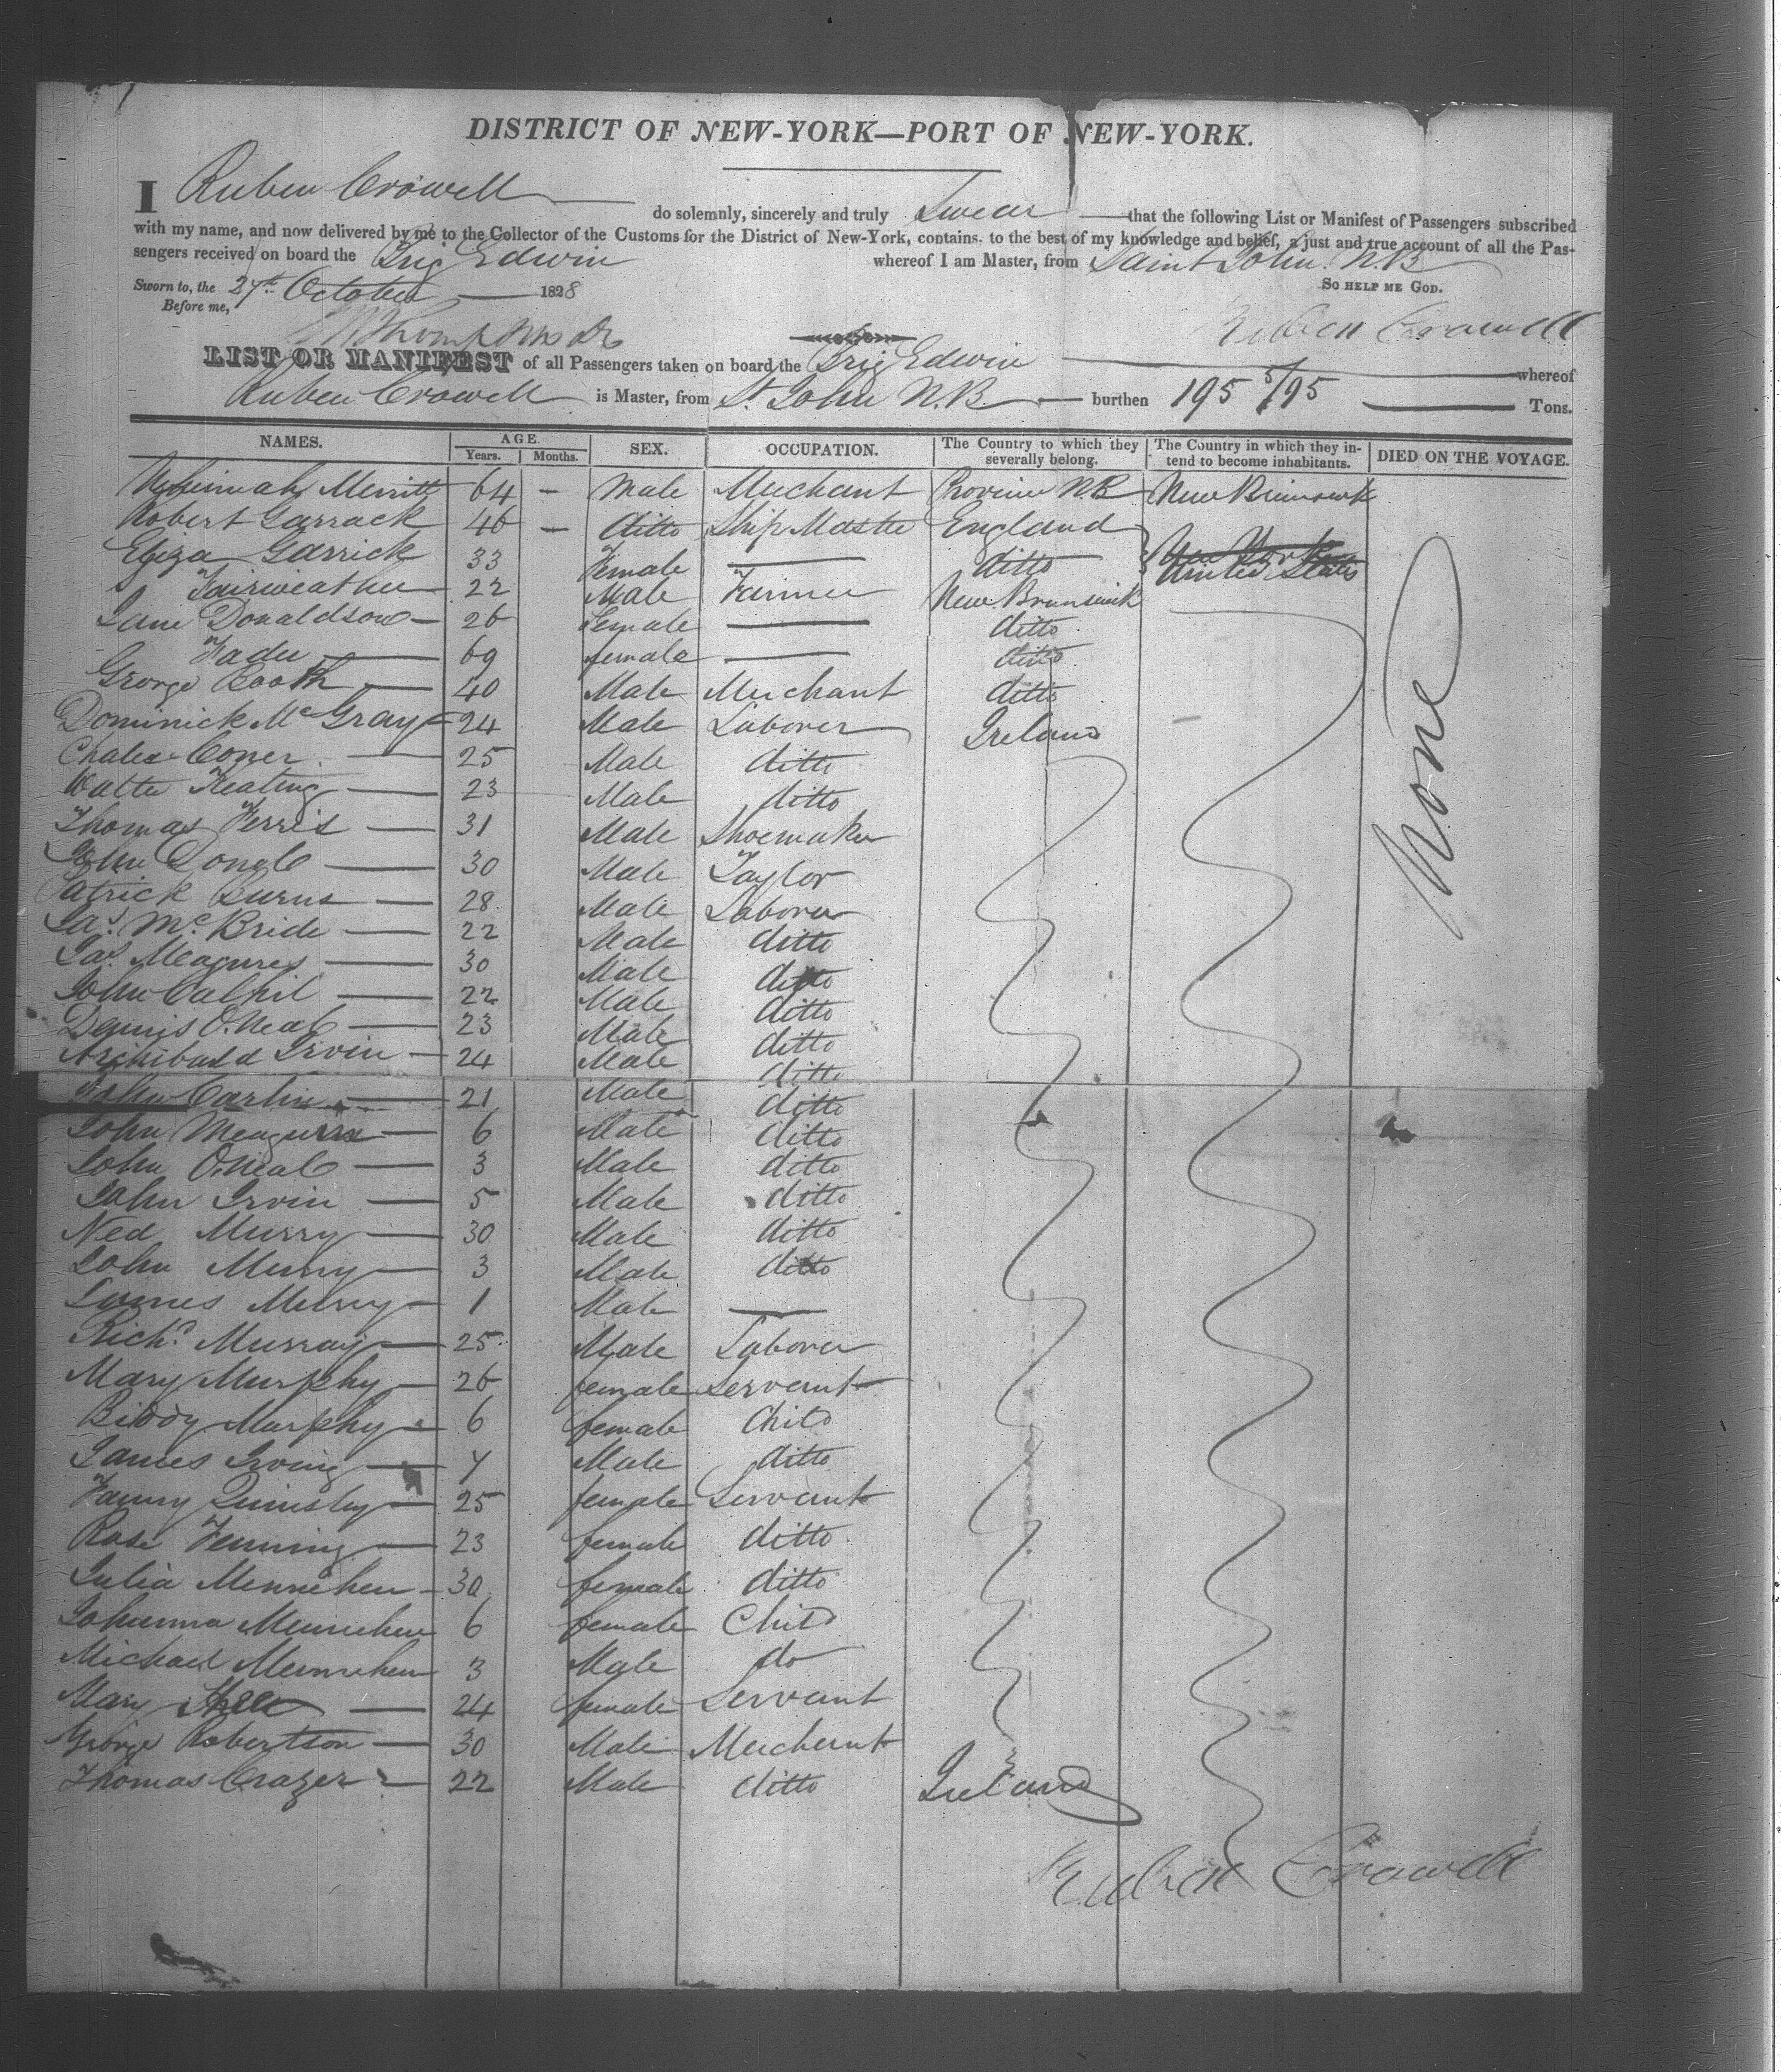 DISTRICT OF NEW-YORK—PORT OF NEW-YORK.
I Ruben Crowell do solemnly, sincerely and truly Swear that the following List or Manifest of Passengers subscribed
with my name, and now delivered by me to the Collector of the Customs for the District of New-York, contains, to the best of my knowledge and belief, a just and true account of all the Pas-
sengers received on board the Brig Edwin whereof I am Master, from Saint John. N.B
Sworn to, the 27th October 1828 So HELP ME GOD.
Before me,
Reuben Crowell
LIST OR MANIFEST of all Passengers taken on board the Brig Edwin whereof
Ruben Crowell is Master, from St. John N.B. burthen 195 5/95 Tons.
NAMES. AGE. Years. Months. SEX. OCCUPATION. The Country to which they severally belong. The Country in which they in-tend to become inhabitants. DIED ON THE VOYAGE.
Nehimiah Merritt 64 - Male Merchant Province N.B New Brunswick
Robert Garrack 46 - ditto Ship Master England
Eliza Garrick 33 Female ditto United States
Fairweather 22 Male Farmer New Brunswick
Jane Donaldson 26 Female ditto
Fader 69 female ditto
George Booth 40 Male Merchant ditto
Dominick McGray 24 Male Laborer Ireland
None
Coner 25 Male ditto
Walter Keating 23 Male ditto
Thomas Ferris 31 Male Shoemaker
John 30 Male Taylor
Patrick Burns 28 Male Laborer
Jas. McBride 22 Male ditto
Jas. Meagures 30 Male ditto
John 22 Male ditto
Dennis O.Neal 23 Male ditto
Archibald Irvin 24 Male ditto
John Carlin 21 Male ditto
John 6 Male ditto
John O.Neal 3 Male ditto
John Irvin 5 Male ditto
Ned Murry 30 Male ditto
John Murry 3 Male ditto
James Murry 1 Male
Richd. Murray 25 Male Laborer
Mary Murphy 26 female Servant
Biddy Murphy 6 female Child
James Irving 7 Male ditto
Fanny Quinsby 25 female Servant
Rose Fenning 23 female ditto
Julia Mennehen 30 female ditto
Johanna Mennehen 6 female Child
Michael Mennehen 3 Male do
Mary 24 female Servant
George Robertson 30 Male Merchant
Thomas Crazer 22 Male ditto Ireland
Reuben Crowell